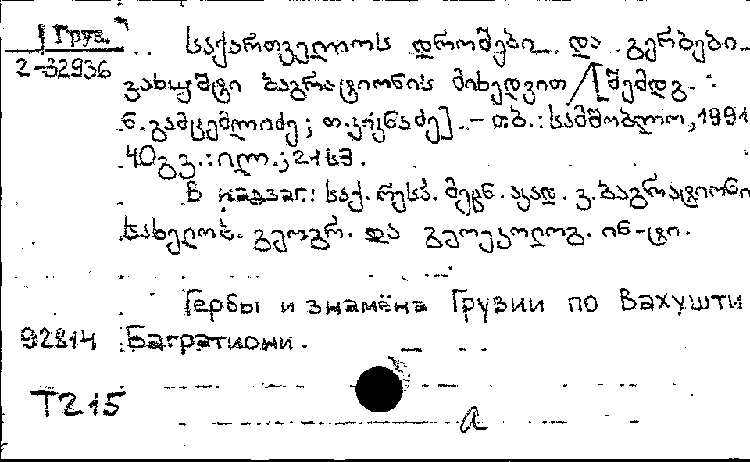 Груз.
2-32936
საქართველოს დროშები და გერბები
ვახუშტი ბაგრატიონის მიხედვით / [შემდგ. :
ნ. გამცემლიძე; თ. კ ნაძე]. - თბ. : სამშობლო, 1991
40 გვ. : ილ. ; 21 სმ.
В надзаг.: საქ. რესპ. მეცნ. აკად. ვ. ბაგრატიონი
სახელობ. გეოგრ. და გეოეკოლოგ. ინ-ტი.
Гербы и знамёна Грузии по Вахушти
92814 Багратиони.
Т215
a